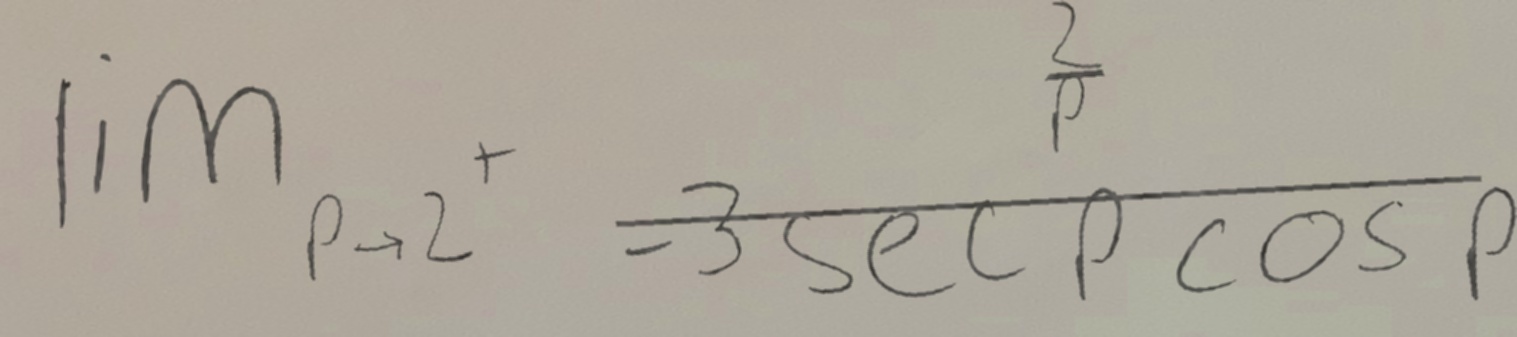 \lim_{p \to 2^+} \frac{\frac{2}{p}}{-3 \sec p \cos p}